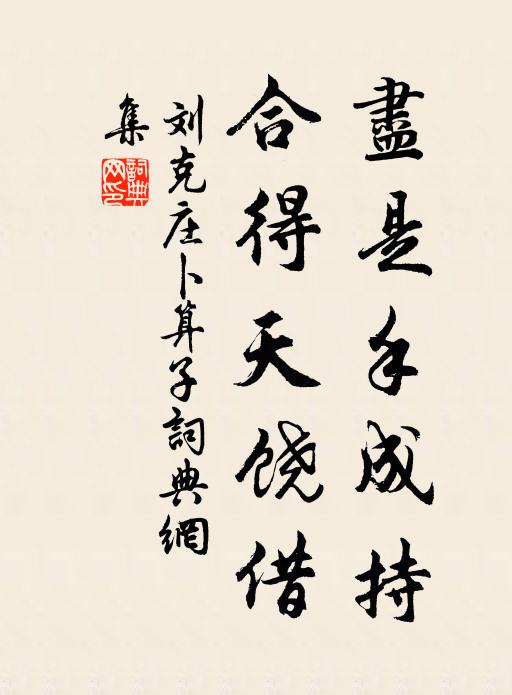 盡是手成持
合得天饶借
刘克庄卜算子詞典網
集
詞典網印